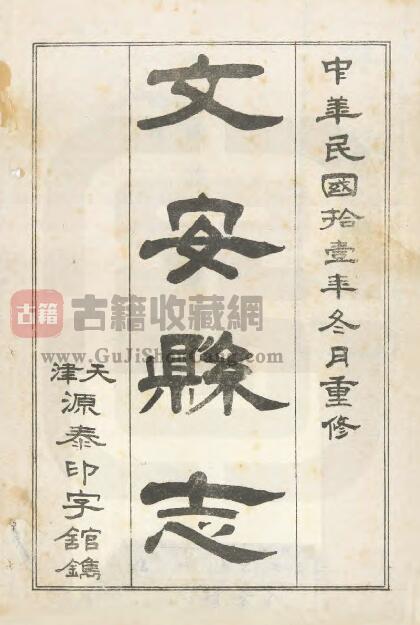 中華民國拾壹年冬月重修
文安縣志
天津
源泰印字舘鐫
古籍
古籍收藏網
www.GuJiShouCang.com